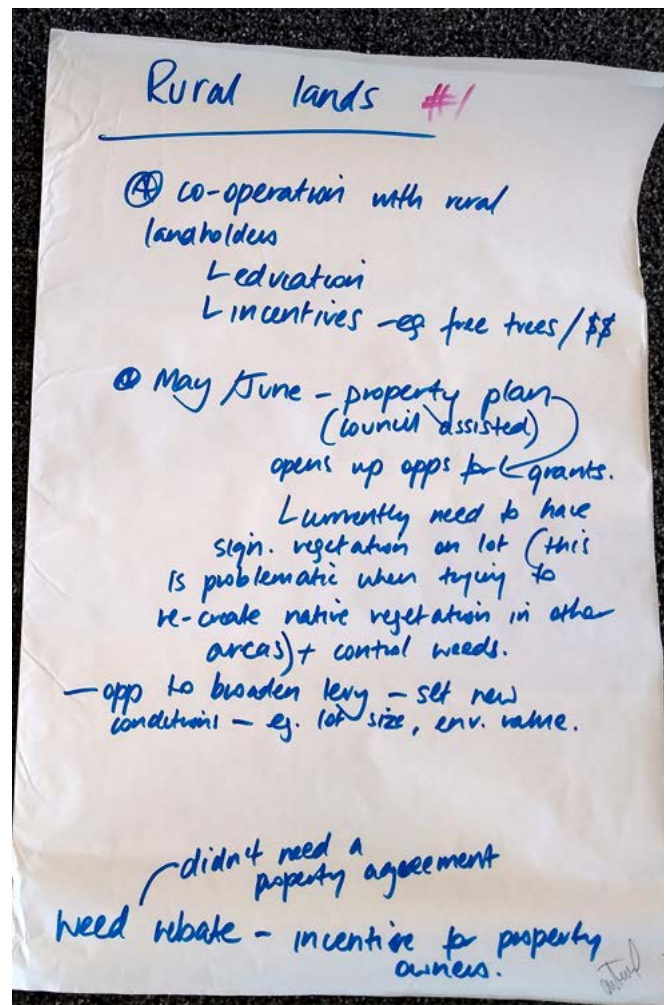 Rural lands #1
④ co-operation with rural
landholders
L education
L incentives - eg free trees / $$
May / June - property plan
(council assisted)
opens up opps for grants.
L currently need to have
sign. vegetation on lot (this
is problematic when trying to
re-create native vegetation in other
areas) + control weeds.
- opp to broaden levy - set new
conditions - eg. lot size, env. value.
didn't need a
property agreement
weed rebate - incentive for property
owners.